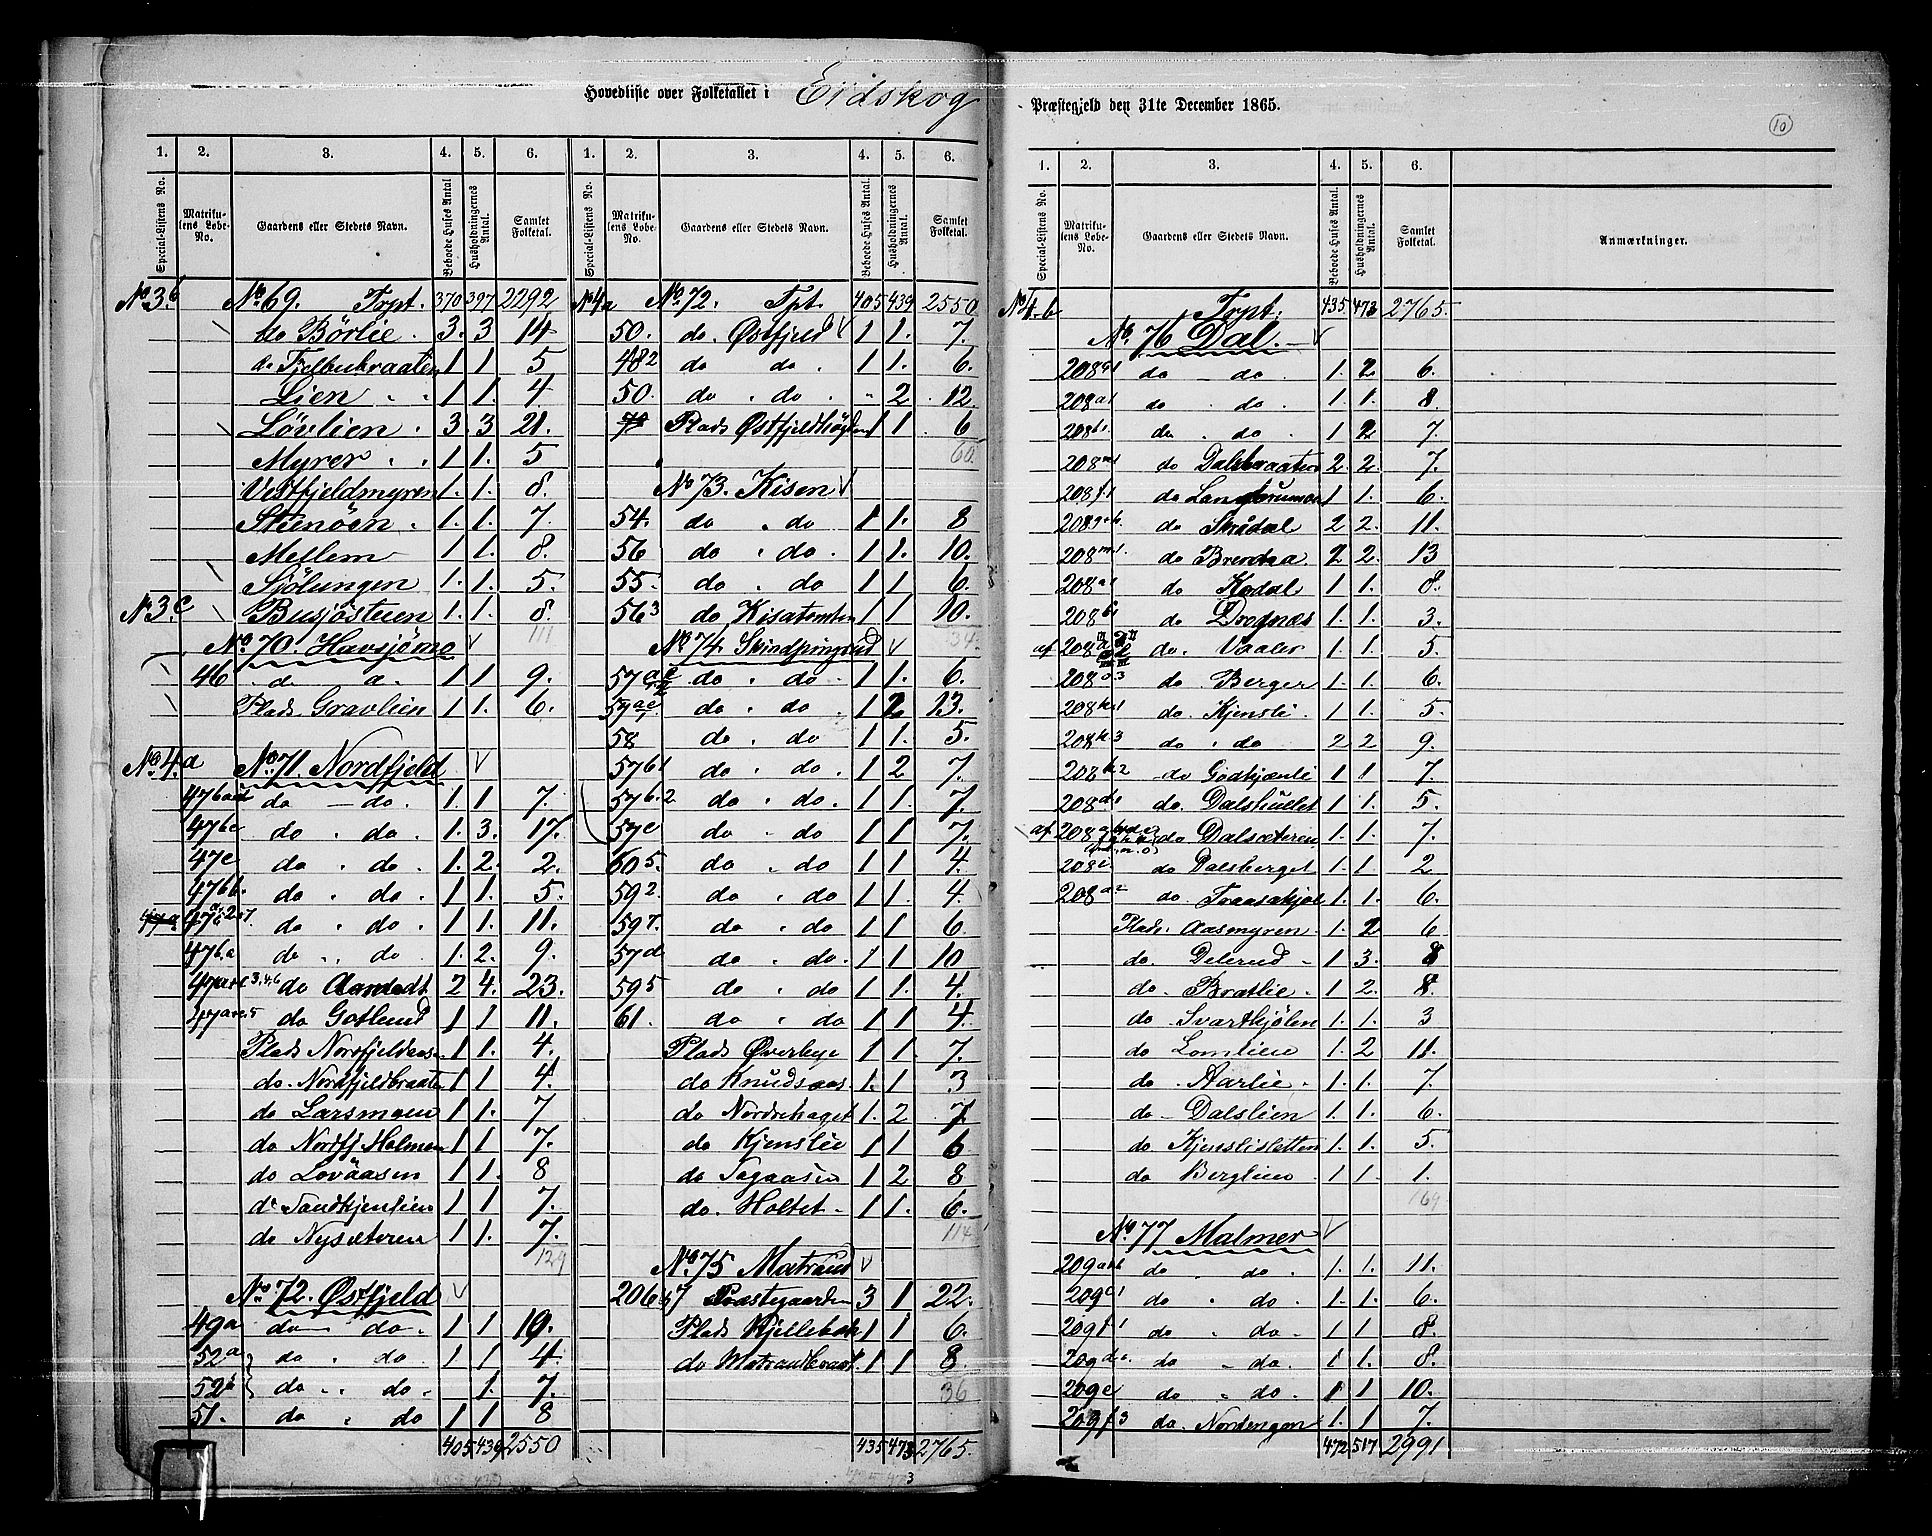 Hovedliste over Folketallet i Eidskog Præstegjeld den 31te December 1865.
10
1. 2. 3. 4. 5. 6.
Special-Listens No. Matrikulens Løbe-No. Gaardens eller Stedets Navn. Beboede Huses Antal Husholdningernes Antal. Samlet Folketal.
No 3.b No 69. Trpt. 370 397 2292
do Börlie 3. 3 14
1 1 5
Lien 1 1. 4
Lövlien 3. 3 21.
Myrer 1 1. 5
Vestfjeldmyren 1. 1. 8.
Stenöen 1. 1. 7.
Mellem 1 1. 8.
Sjölungen 1. 1. 5.
No 3.c Busjöstuen 1. 1. 8.
111
No 70. Havsjömo
46 d. d. 1 1 9.
Plads Gravlien 1 1. 6.
No 4.a No 71. Nordfjeld
do do. 1. 1 7.
47bc do do. 1. 3. 17.
47e do do. 1. 2. 2.
47bb. do do. 1 1. 5.
do do. 1. 1. 11.
47b.a do do 1. 2. 9.
do Aamodt 2 4. 23.
do Gotlund 1 1 11.
Plads Nordfjeldaasen 1 1. 4.
do. Nordfjeldbraaten 1 1 4.
do Larsmoen 1 1. 7
do Nordfj. Holmen 1 1 7.
do Lovaasen 1 1. 8
do Sandkjenlien 1 1 7.
do Nysæteren 1 1. 7.
129
No 72. Østfjeld
49a do do. 1 1 10.
52a do do. 1 1 4.
52b do do. 1. 7.
51. do do 1 1 8
405 439 2550
1. 2. 3. 4. 5. 6.
Special-Listens No. Matrikulens Løbe-No. Gaardens eller Stedets Navn. Beboede Huses Antal Husholdningernes Antal. Samlet Folketal.
No 4a No 72. Tpt. 405 439 2550
50. do. Østfjeld 1 1. 7.
48 2 do do. 1 1. 6.
50. do do. " 2 12.
Plads Østfjeldhögden 1 1 6
60
No 73. Kisen
54. do do 1 1. 8
56 do do. 1 1. 10.
55. do do 1 1 6.
56 3 do Kisatomten 1 1 10.
34.
No 74. Skindpungrud
57 do do 1 1. 6.
do do. 1 2 13.
58 do do 1 1. 5.
57b1 do do. 1 2 7.
57b.2 do do. 1 1. 7.
57c do do 1 1 7.
60 5. do do 1 1 4.
59 2. do do 1 1. 4.
59 7. do do 1 1 6
57d do do. 1 1 10
59 5 do do 1 1. 4.
61. do do 1 1 4.
Plads Överbye 1 1. 7.
do Knudsaas 1. 1 3
do Nordrehaget 1. 2 7
do Kjenslie 1 1 6
do Tagaasen 1 2 8
do. Holtet 1 1. 6.
114
No 75 Matrand
206 Præstegaarden 3 1 22.
Plads Kjellebak 1 1 6.
do Matrandbraat. 1 1 8.
36
435 473 2765.
1. 2. 3. 4. 5. 6.
Special-Listens No. Matrikulens Løbe-No. Gaardens eller Stedets Navn. Beboede Huses Antal. Husholdningernes Antal. Samlet Folketal. Anmærkninger.
No 4-b Trpt. 435. 473 2765.
No 76 Dal.
208 do do 1. 2 6.
208a1 do do. 1. 1. 8.
208 do do. 1 2 7.
208m1 do Dalsbraaten 2. 2. 7.
208f1 do 1 1. 6.
208 do Skådal 2 2. 11.
208m1. do 2 2. 13
208a1 do Kodal 1 1. 8.
208b1 do 1. 1. 3.
af 208 do. Vaaler 1. 1. 5.
208o3 do. Berger 1. 1. 6.
208k1 do. Kjensli 1. 1 5.
208k.3 do do 2 2 9.
208k2 do Godkjenli 1 1 7.
208d1 do. Dalshullet 1 1. 5.
af 208 do Dalsæteren 1. 1. 7.
208i. do Dalsberget 1. 1. 2
208a2 do. 1. 1. 6.
Plads. Aasmyren 1. 2 6
do. Delerud 1 3. 8
do. Brætlie 1 2. 8.
do. Svartkjölen 1. 1. 3
do Lomlien 1. 2 11.
do. Aarlie 1. 1. 7.
do Dalslien 1 1. 6.
do Kjenslisletten 1. 1. 5.
do Berglien 1 1. 1.
169
No 77 Malmer
209 do. do. 1. 1. 11.
209 do. do. 1. 1. 6.
209f1 do do 1 1 8.
209d1. do do. 1 1. 8.
209e do do. 1 1 10.
209f3 do. Nordengen 1. 1 7.
472. 517 2991